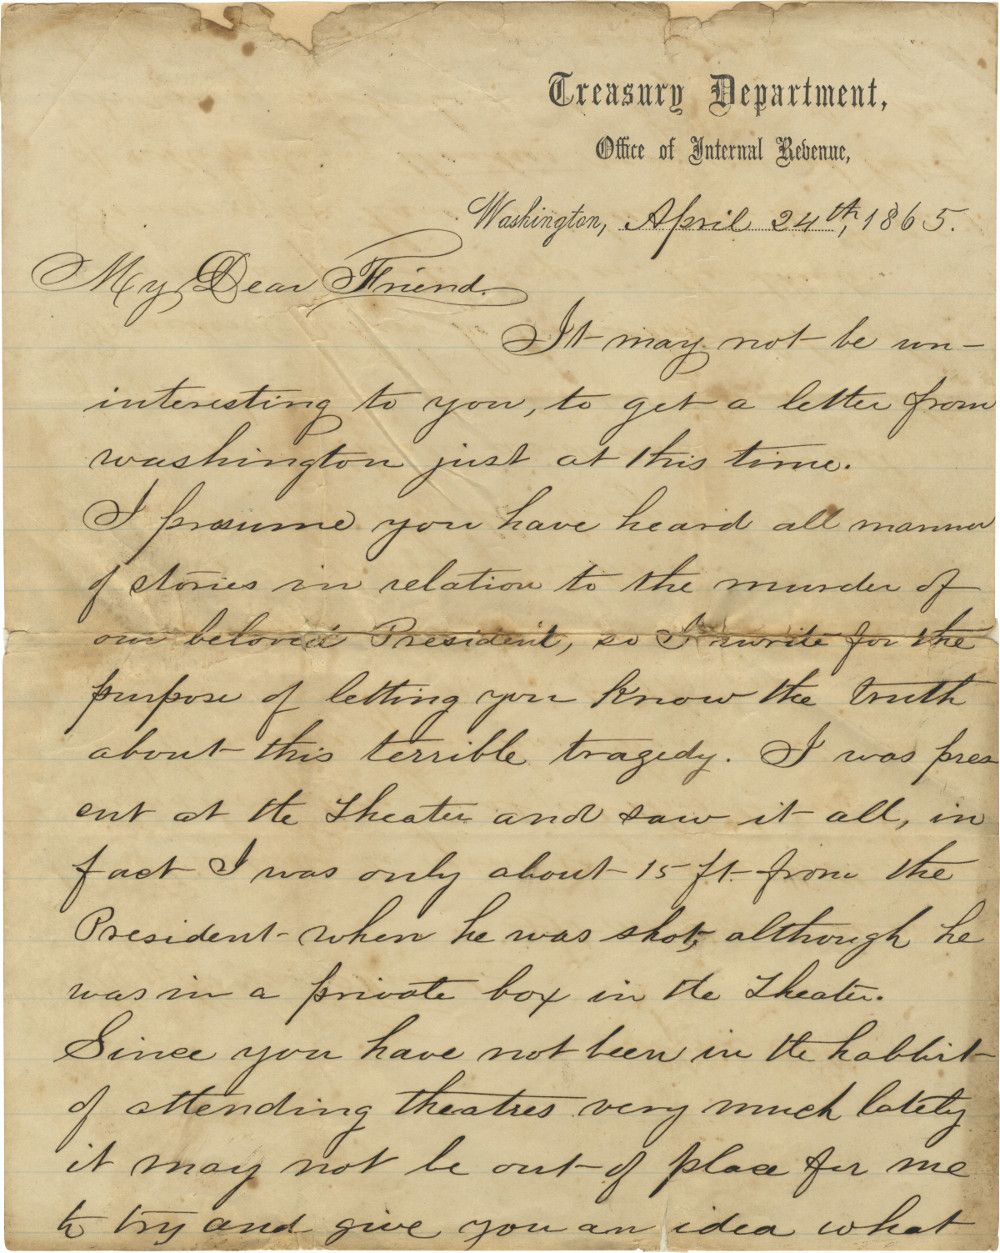 Treasury Department,
Office of Internal Revenue,
Washington, April 24th, 1865.
My Dear Friend.
It may not be un-
interesting to you, to get a letter from
washington just at this time.
I presume you have heard all manner
of stories in relation to the murder of
our beloved President, so I write for the
purpose of letting you know the truth
about this terrible tragedy. I was pres
ent at the Theater and saw it all, in
fact I was only about 15 ft. from the
President when he was shot, although he
was in a private box in the Theater.
Since you have not been in the habbit
of attending theatres very much lately
it may not be out of place for me
to try and give you an idea what